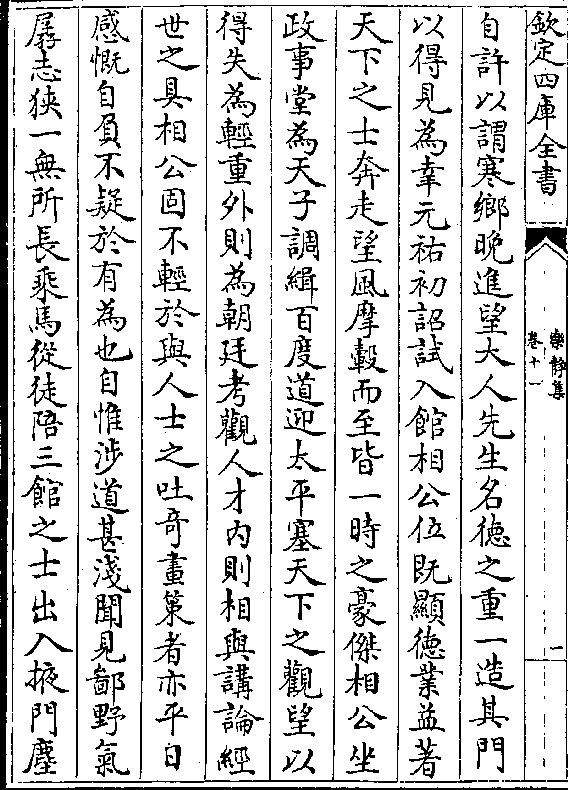 欽定四庫全書
樂靜集
卷十一
一
自許以謂寒鄉晚進望大人先生名徳之重一造其門
以得見為幸元祐初詔試入館相公位既顯徳業益著
天下之士奔走望風摩轂而至皆一時之豪傑相公坐
政事堂為天子調緝百度道迎太平塞天下之觀望以
得失為輕重外則為朝廷考觀人才内則相與講論經
世之具相公固不輕於與人士之吐竒畫策者亦平日
感慨自負不疑於有為也自惟涉道甚淺聞見鄙野氣
孱志狹一無所長乘馬從徒陪三館之士出入掖門塵